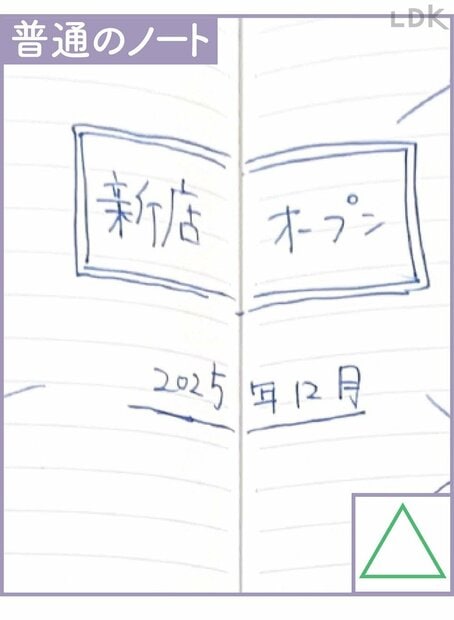 LDK
普通のノート
新店 オープン
2025年12月